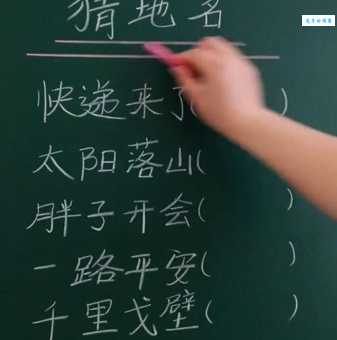 猜地名
快递来了( )
太阳落山(
胖子开会( )
一路平安( )
千里戈壁( )